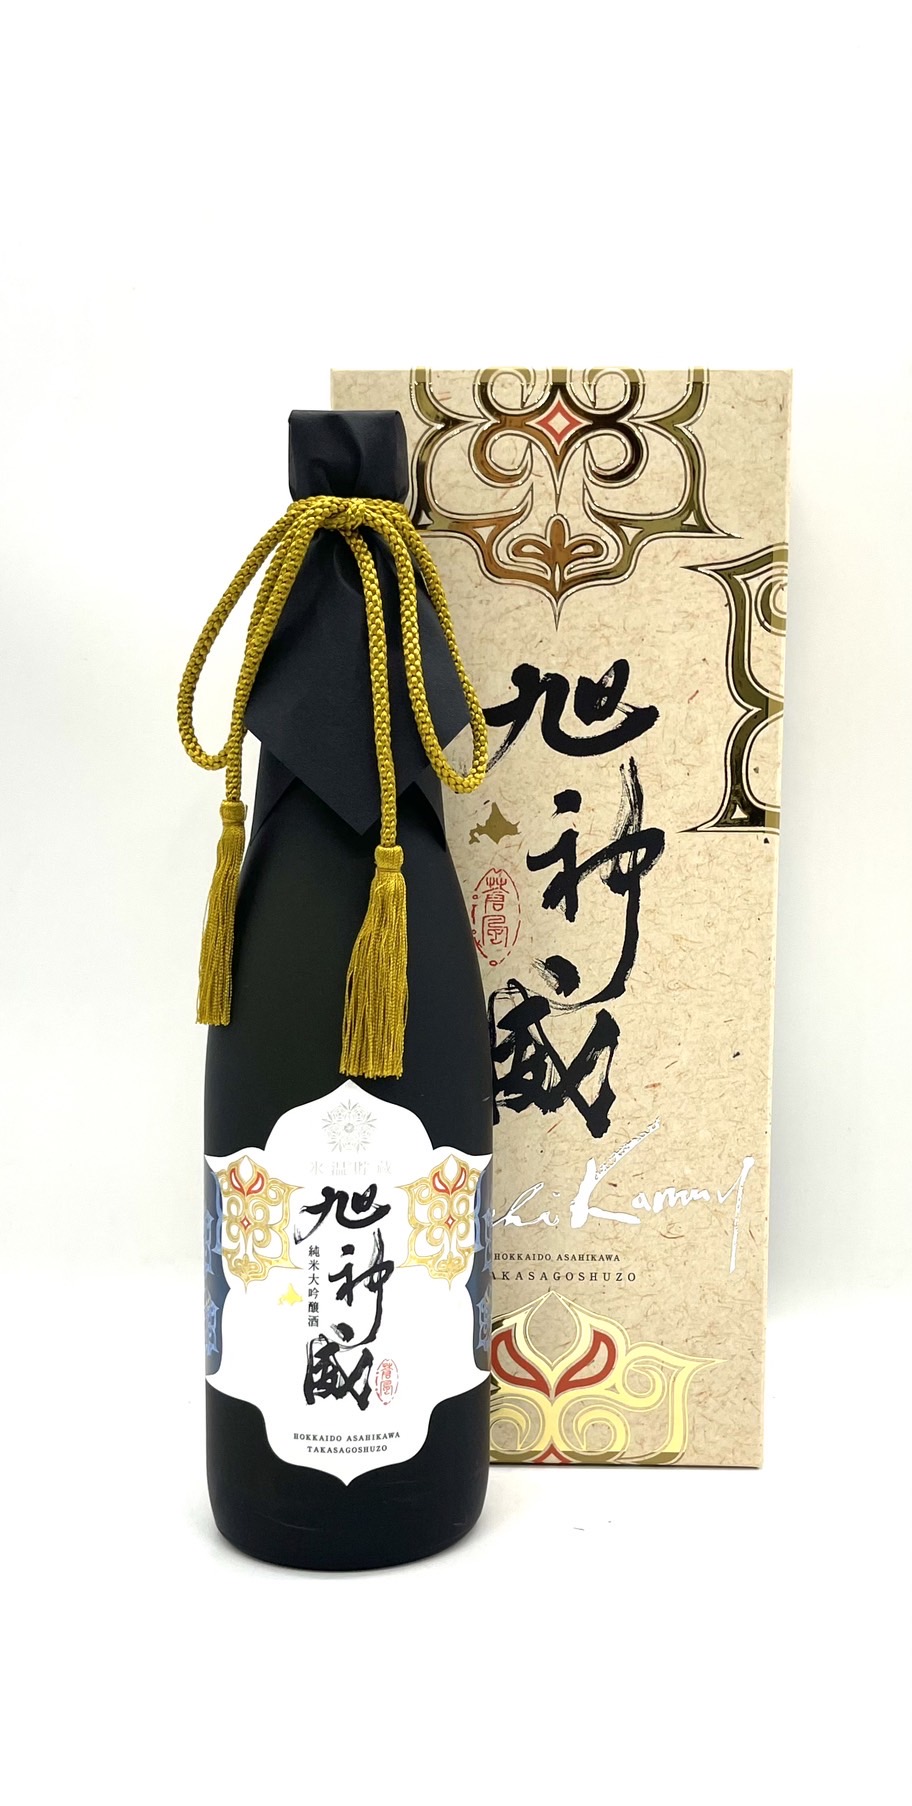 旭神威
蒼風
Kamuy
HOKKAIDO ASAHIKAWA
AKASAGOSHUZO
氷温貯蔵
旭神威
純米大吟醸酒
HOKKAIDO ASAHIKAWA
TAKASAGOSHUZO